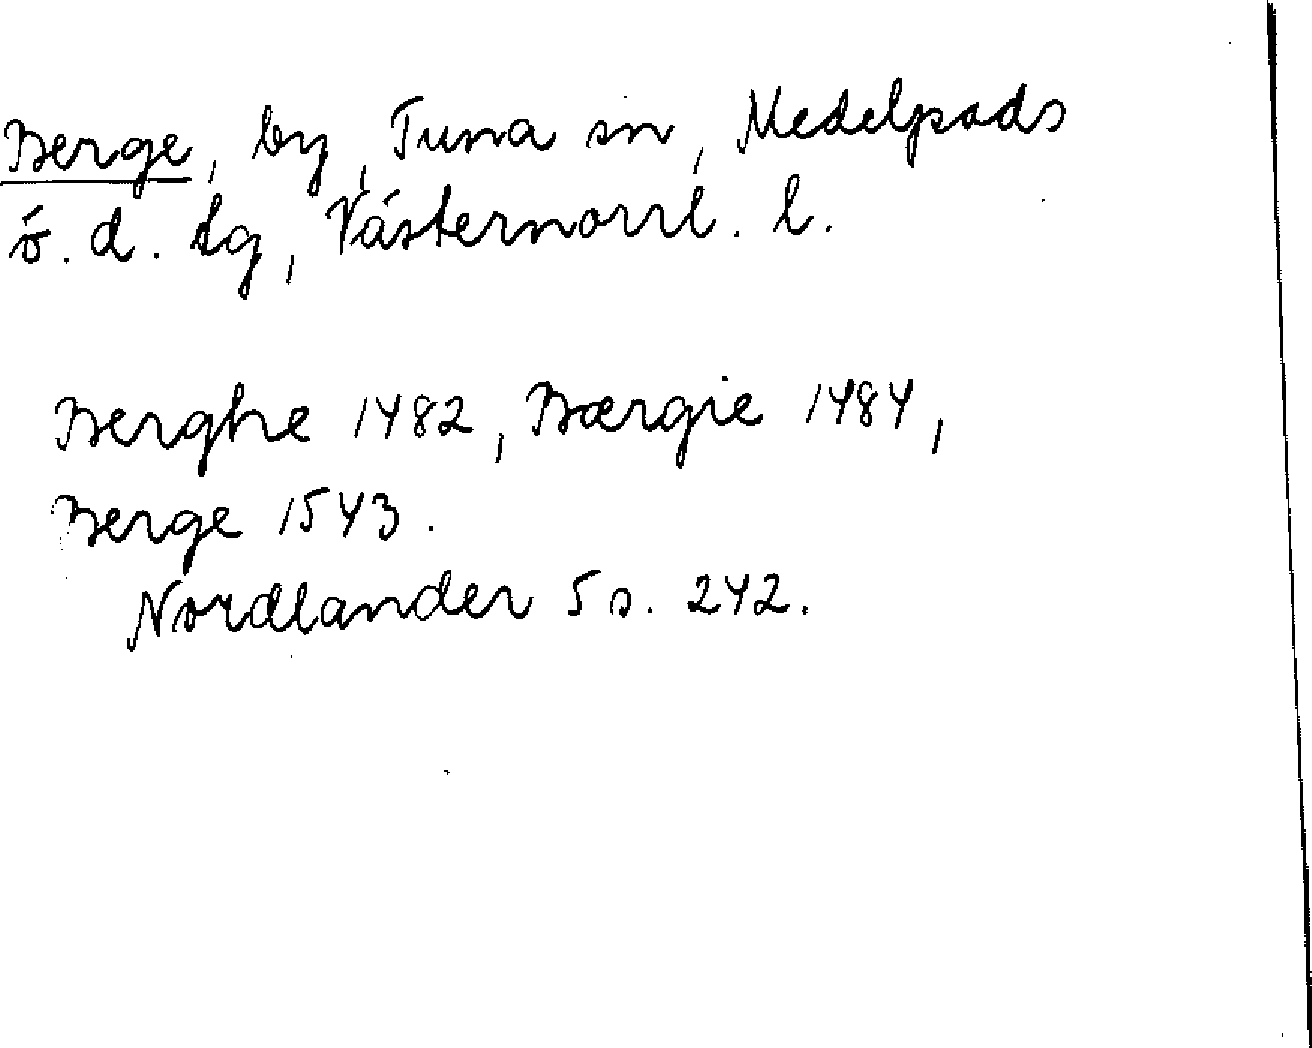 Berge, by, Tuna sn, Medelpads
ö. d. tg, Västernorrl. l.
Berghe 1482, Bærgie 1484,
Berge 1543.
Nordlander 5 s. 242.